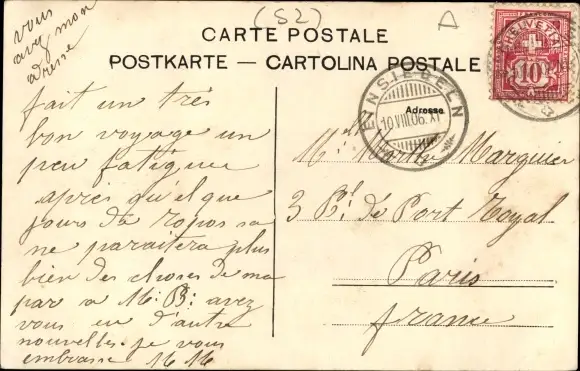 (S2)
CARTE POSTALE
POSTKARTE — CARTOLINA POSTALE
vous
avez mon
adresse
fait un très
bon voyage un
peu fatiguée
après quelque
jours de ropos sa
ne paraitera plus
bien des choses de ma
par a M. B: avez
vous eu d'autre
nouvelles. je vous
embrasse M M
HELVETIA
10
EINSIEDELN
10 VIII.06. XI
Adresse
Marguier
3 Bd. de Port Royal
Paris
france